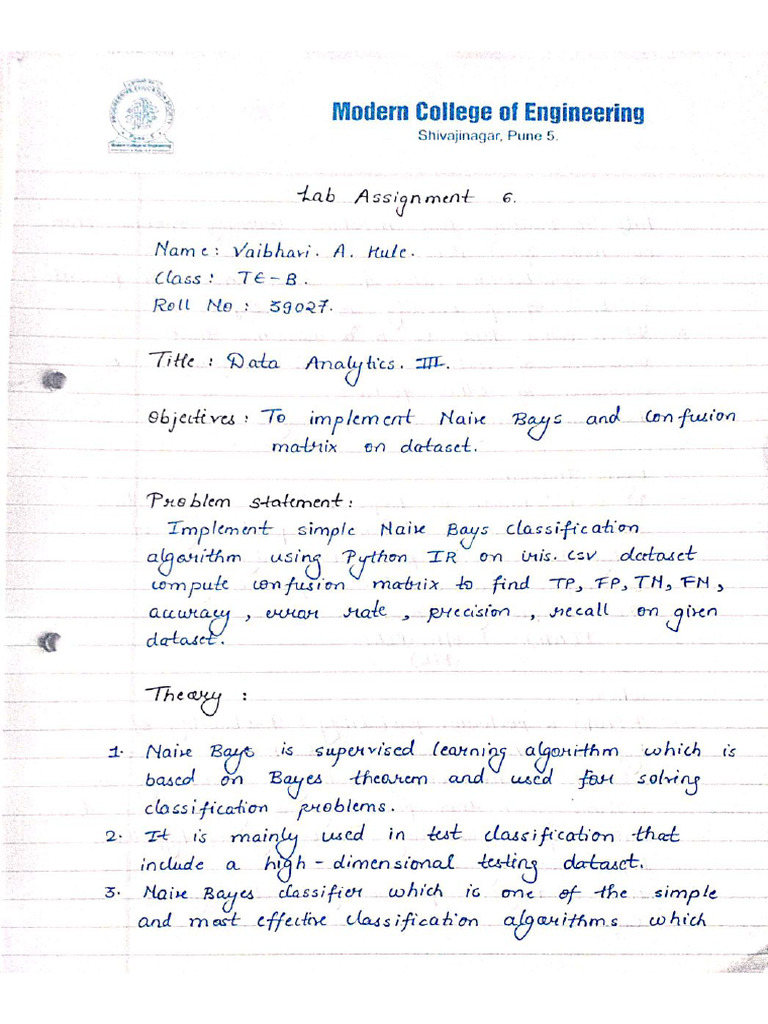 Modern College of Engineering
Shivajinagar, Pune 5.
Modern College of Engineering
Lab Assignment 6.
Name: Vaibhavi. A. Hule.
Class: TE-B.
Roll No: 39027.
Title: Data Analytics. III.
Objectives: To implement Naive Bays and confusion
matrix on dataset.
Problem statement:
Implement simple Naive Bays classification
algorithm using Python IR on iris.csv dataset
compute confusion matrix to find TP, FP, TN, FN,
accuracy, error rate, precision, recall on given
dataset.
Theory:
1. Naive Baye is supervised learning algorithm which is
based on Bayes theorem and used for solving
classification problems.
2. It is mainly used in test classification that
include a high-dimensional testing dataset.
3. Naive Bayes classifier which is one of the simple
and most effective classification algorithms which